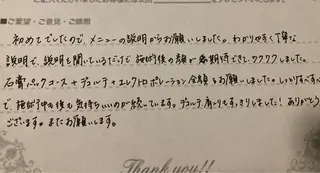 ■ご要望・ご意見・ご感想
初めてでしたので、メニューの説明からお願いしました。わかりやすく丁寧な
説明で、説明を聞いているだけで、施術後の顔が期待できて、ワクワクしました。
石膏パックコース+デコルテ+エレクトロポレーション全顔をお願いしました。しっかりすべすべ
で、施術中も後も気持ちいいのが続いています。デコルテ、肩こりもすっきりしました!ありがとう
ございます。またお願いします。
Thank you!!